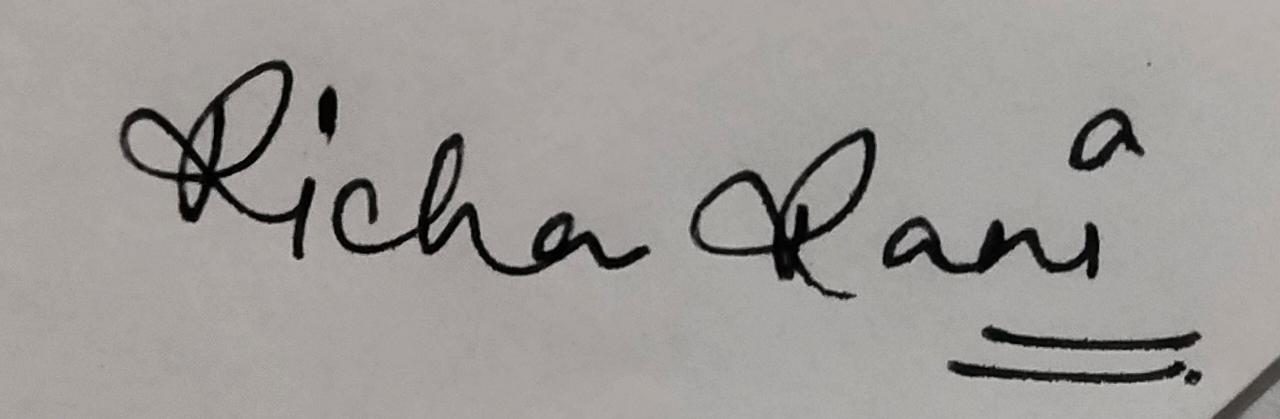 Richa Rani